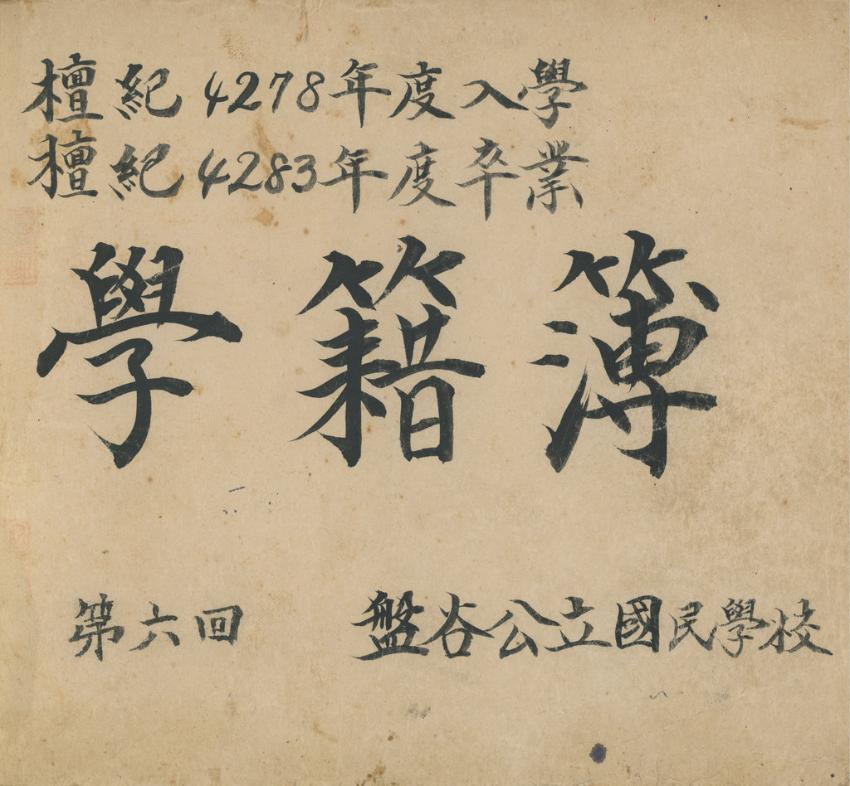 檀紀4278年度入學
檀紀4283年度卒業
學籍簿
第六回 盤谷公立國民學校